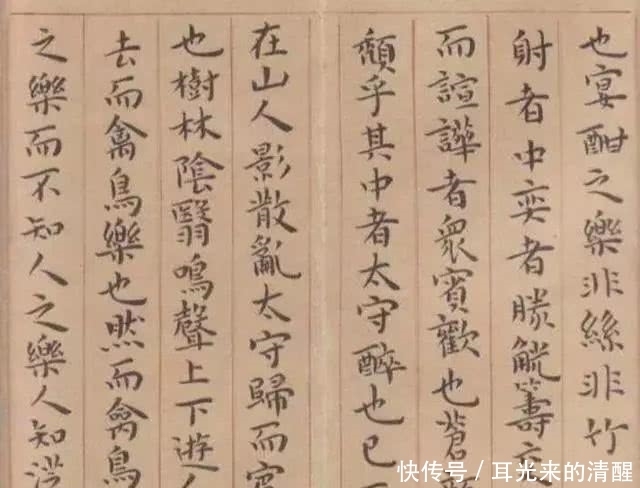 也宴酣之樂非絲非竹
射者中奕者勝觥籌
而諠譁者衆賓歡也蒼
頹乎其中者太守醉也已
在山人影散亂太守歸而賓
也樹林陰翳鳴聲上下遊人
去而禽鳥樂也然而禽鳥
之樂而不知人之樂人知從
快传号/耳光来的清醒